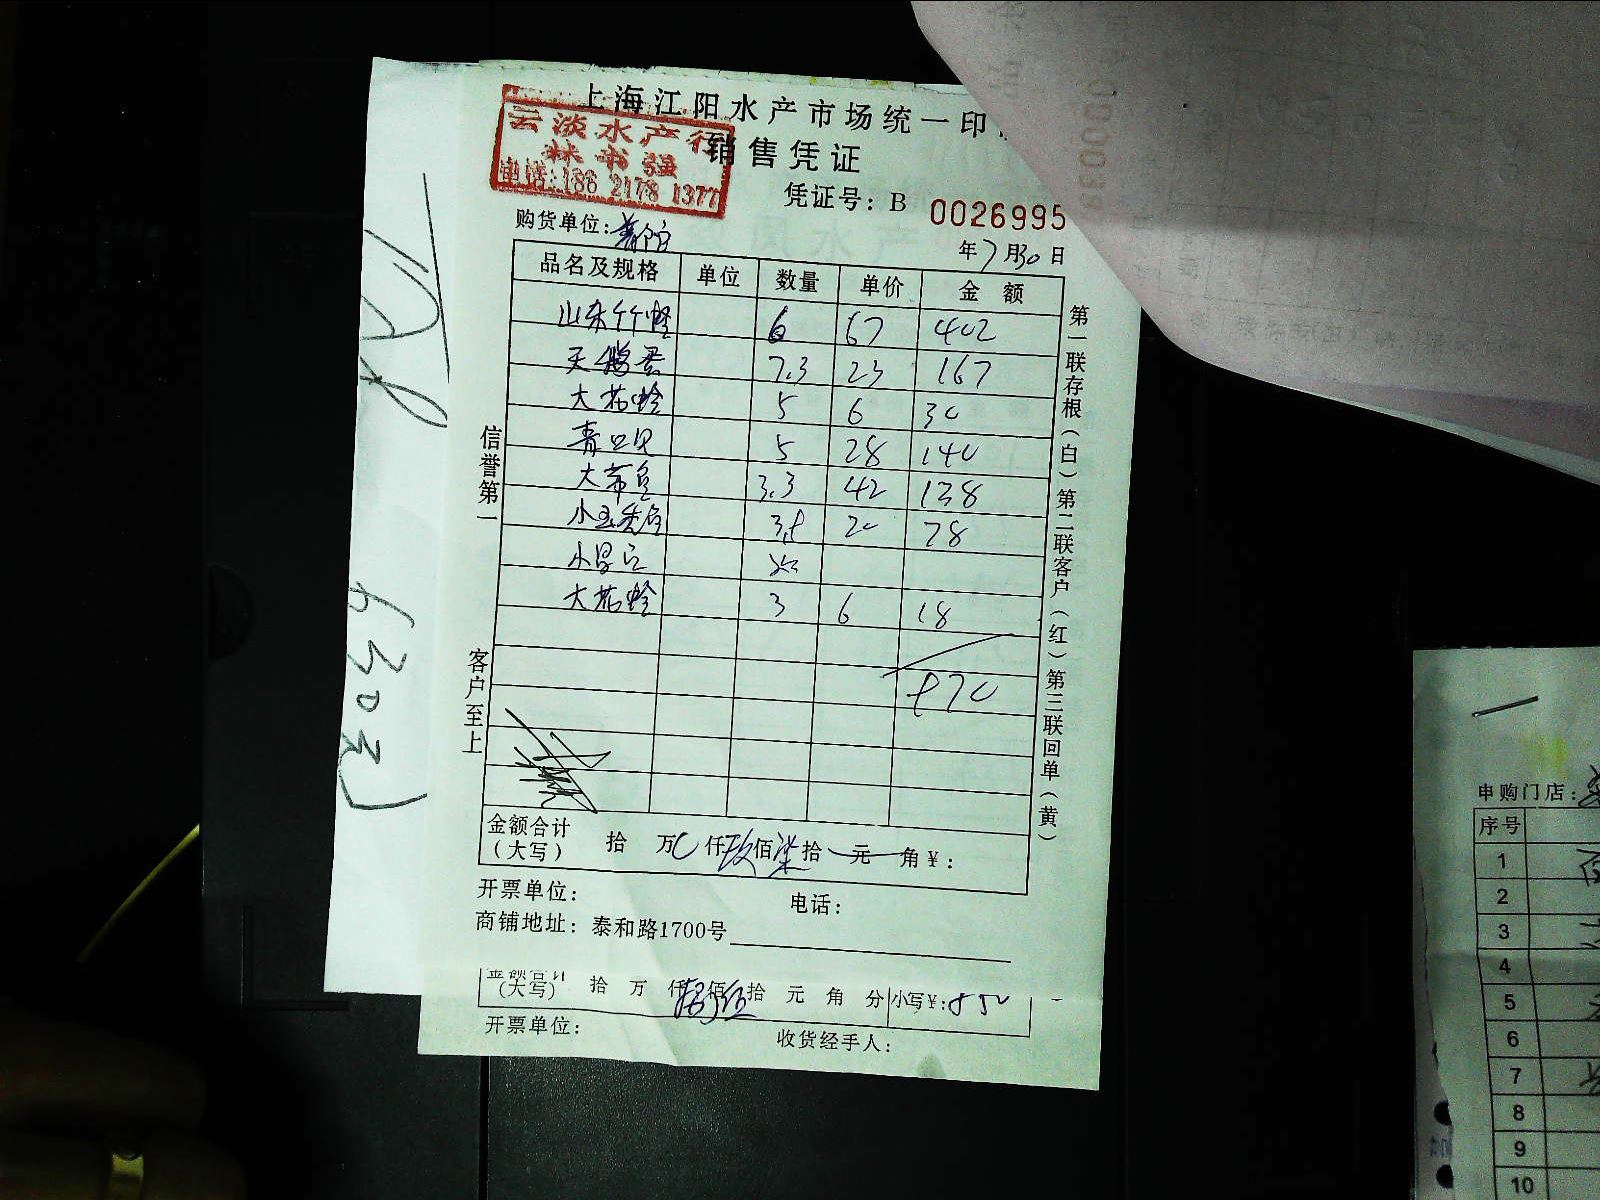 上海江阳水产市场统一印
云淡水产行
林书强
电话:186 2178 1377
销售凭证
凭证号: B 0026995
购货单位:
年 7月30日
品名及规格 单位 数量 单价 金 额
山东竹蛏 6 67 402
天鹅蛋 7.3 23 167
大花蛤 5 6 30
青口贝 5 28 140
大带鱼 3.3 42 138
小黄鱼 20 78
大花蛤 3 6 18
970
金额合计
(大写) 拾 万 0 仟 玖 佰 柒 拾 元 角 ¥:
开票单位: 电话:
商铺地址: 泰和路1700号
信誉第一
客户至上
第一联存根(白) 第二联客户(红) 第三联回单(黄)
金额合计
(大写) 拾 万 仟 佰 拾 元 角 分 小写¥: 850
开票单位: 收货经手人:
申购门店:
序号
1
2
3
4
5
6
7
8
9
10